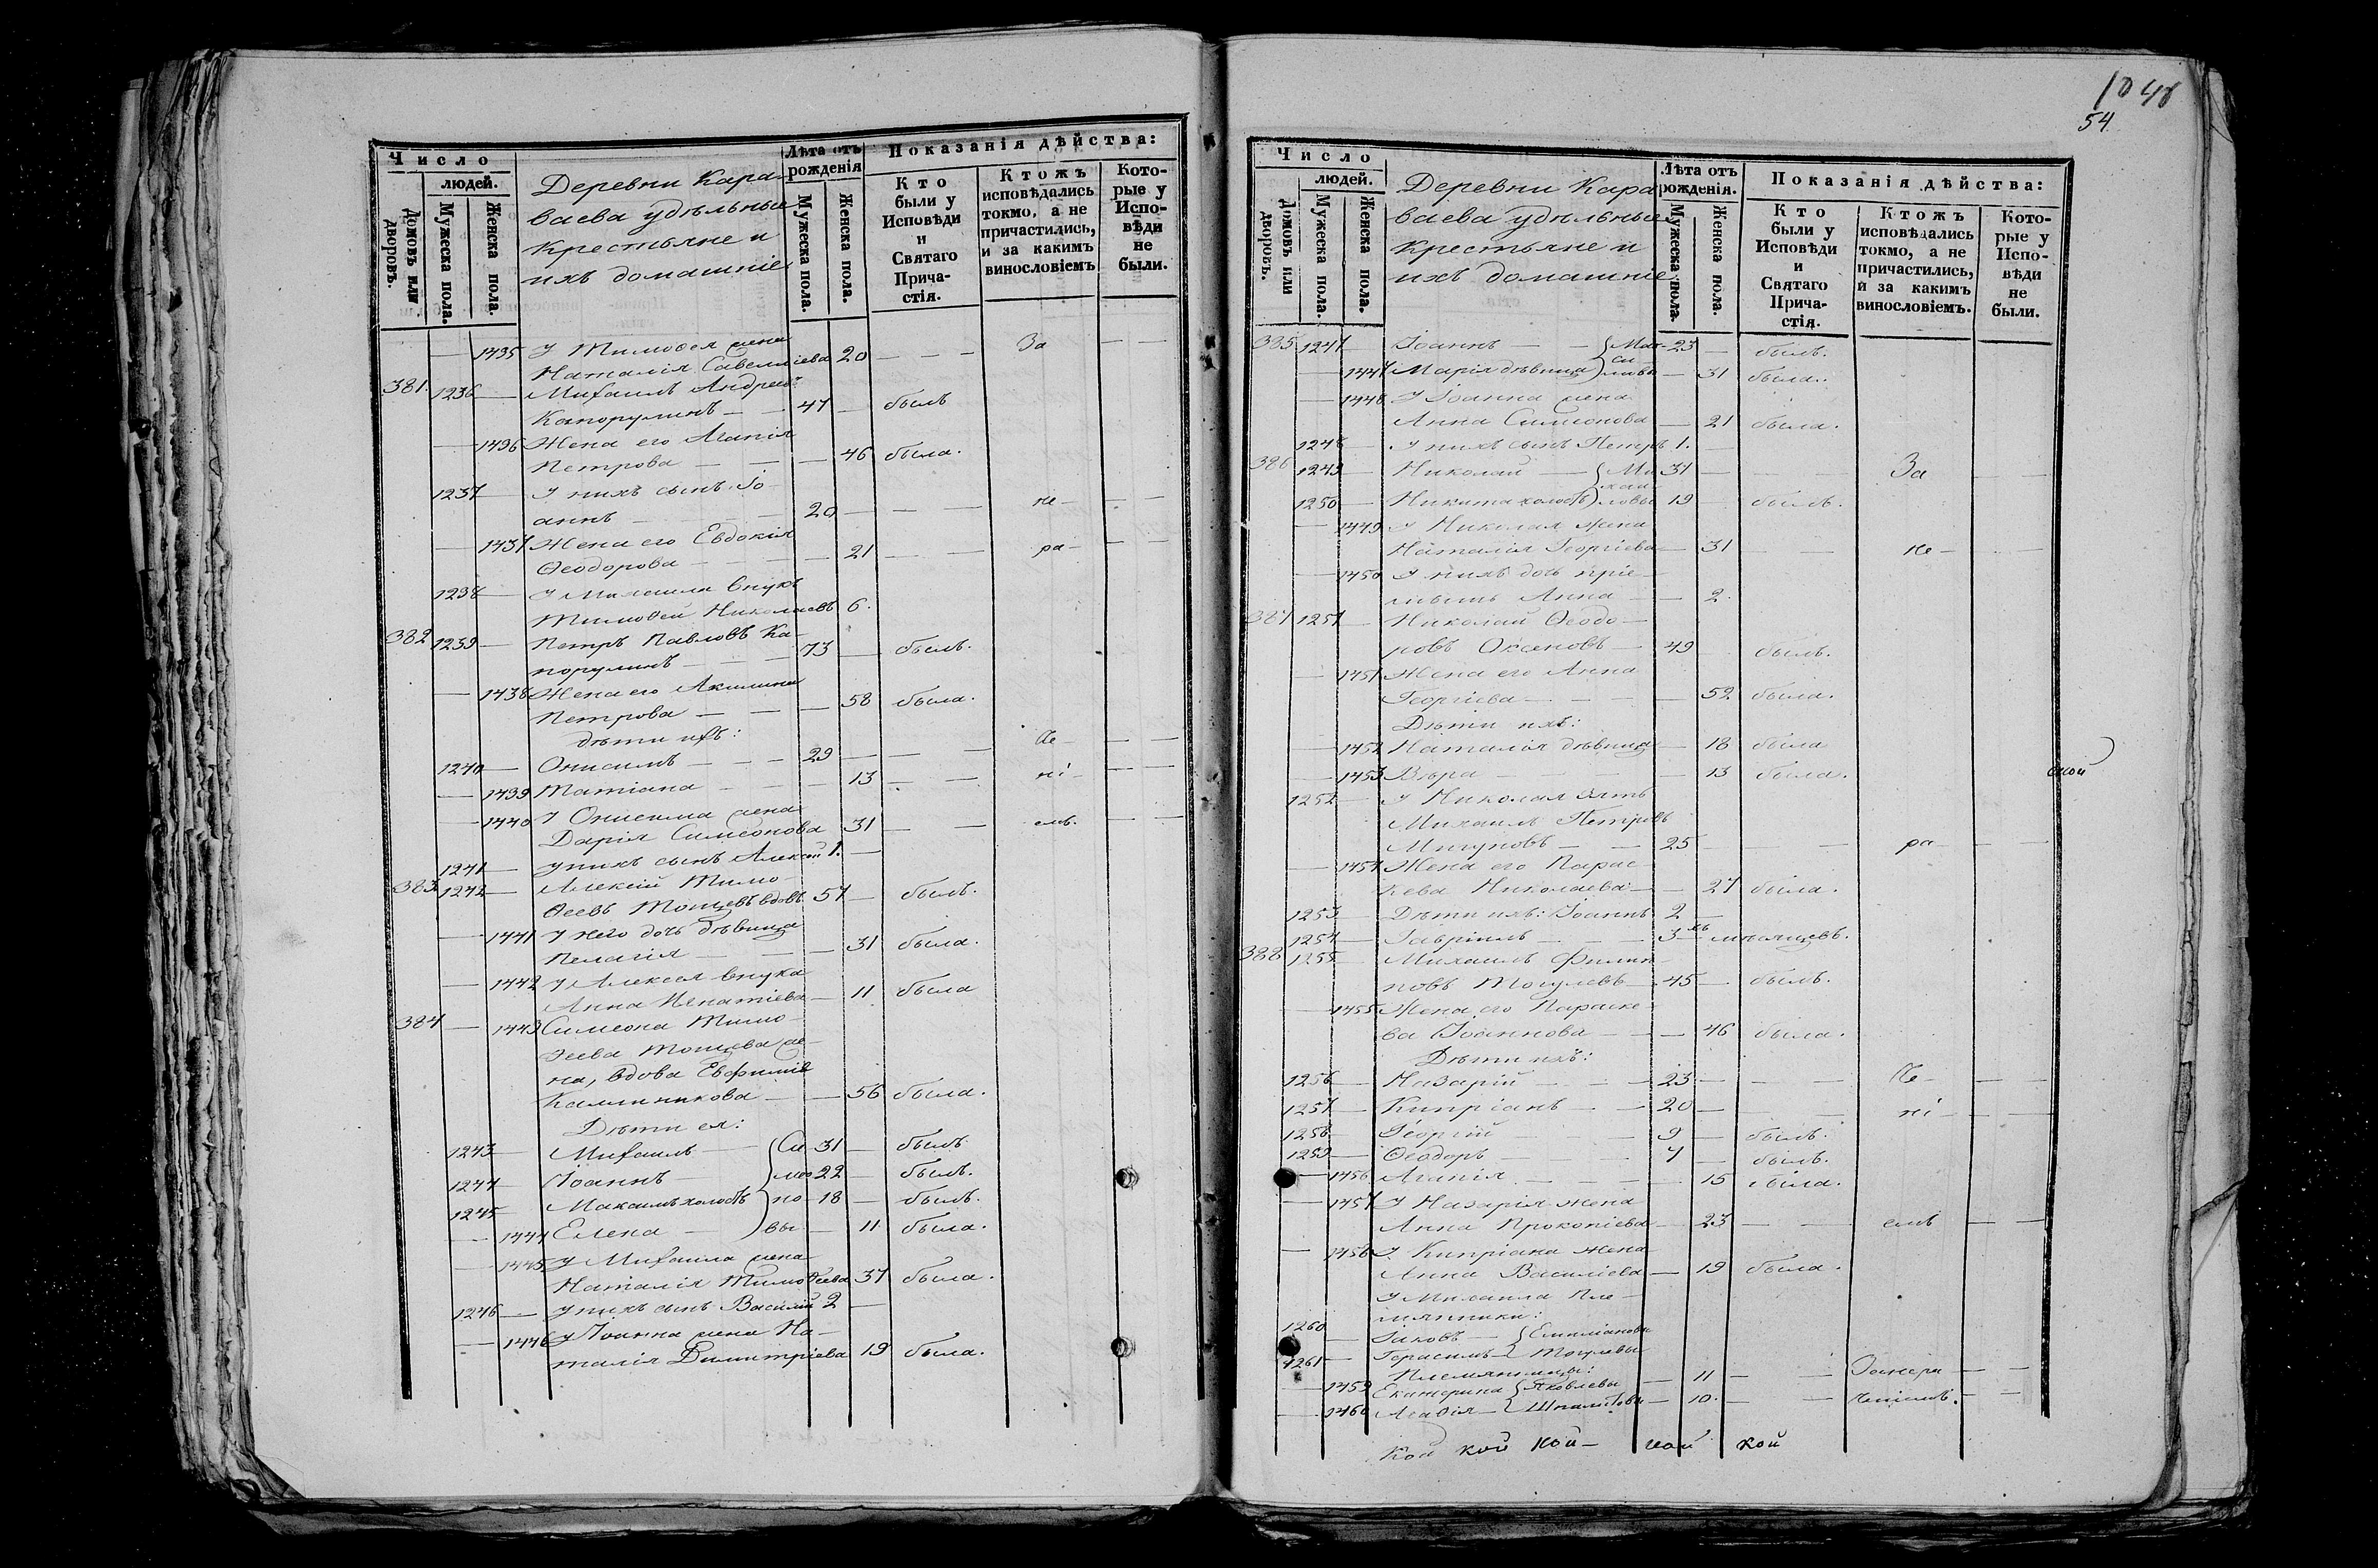 10 48
54
Число
людей.
Домовъ или дворовъ.
Мужеска пола.
Женска пола.
Деревни Кара-
ваева удѣльные
Крестьяне и
ихъ домашніе
Лѣта отъ рожденія
Мужеска пола.
Женска пола.
Показанія дѣйства:
Кто были у Исповѣди и Святаго Прича-стія.
Ктожъ исповѣдались токмо, а не причастились, и за какимъ винословіемъ
Кото-рые у Испо-вѣди не были.
1435 У Тимоѳея жена
Наталія Савеліева 20 — — — За — —
381. 1236 — Михаилъ Андреев
Капорулинъ — — 47 — былъ
— 1436 Жена его Агапія
Петрова — — — 46 была.
1237 — У нихъ сынъ Іо-
аннъ — — 20 — — — не — —
— 1437 Жена его Евдокія
Ѳеодорова — — — 21 — — ра — —
1238 — У Михаила внукъ
Тимоѳей Николаевъ 6.
382 1239 — Петръ Павловъ Ка-
порулинъ — — 73 — былъ.
— 1438 Жена его Акилина
Петрова — — — 58 была.
дѣти ихъ:
1240 — Онисимъ — — — 29 — — — че — —
— 1439 Татіана — — — 13 — — ні — —
— 1440 У Онисима жена
Дарія Симеонова 31 — — емъ. — —
1241 — У нихъ сынъ Алексій 1. —
383 1242 — Алексій Тимо-
ѳеевъ вдовъ 57 — былъ.
— 1441 У него дочь дѣвица
Пелагія — — — 31 была.
— 1442 У Алексея внука
Анна Игнатіева — 11 была
384 — 1443 Симеона Тимо-
ѳеева же-
на, вдова Евфимія
Каллиникова — — 56 была.
Дѣти ея:
1243 — Михаилъ — Си 31 — былъ
1244 — Іоаннъ — мео 22 — былъ.
1245 — Максимъ холостъ но 18 — былъ.
— 1444 Елена — вы — 11 была.
— 1445 У Михаила жена
Наталія Тимоѳеева 37 была.
1246 — У нихъ сынъ Василій 2 —
— 1446 У Іоанна жена На-
талія Димитріева 19 была.
Число
людей.
Домовъ или дворовъ.
Мужеска пола.
Женска пола.
Деревни Кара
ваева удѣльные
Крестьяне и
ихъ домашніе
Лѣта отъ рожденія.
Мужеска пола.
Женска пола.
Показанія дѣйства:
Кто были у Исповѣди и Святаго Прича-стія.
Ктожъ исповѣдались токмо, а не причастились, и за какимъ винословіемъ.
Кото-рые у Испо-вѣди не были.
385 1247 — Іоаннъ — — Мак- 23 — былъ.
си-
— 1447 Марія дѣвица мовы — 31 была.
— 1448 У Іоанна жена
Анна Симеонова — 21 была.
1248 — У нихъ сынъ Петръ 1. —
386 1249 — Николай — Ми 31 — — За — —
хаи-
1250 — Никита холостъ ловы 19 былъ.
— 1449 У Николая жена
Наталія Георгіева — 31 — не — —
— 1450 У нихъ дочь пріе-
мышъ Анна — — 2.
387 1251 — Николай Ѳеодо-
ровъ Оксеновъ — 49 былъ.
— 1451 Жена его Анна
Георгіева — — — 52 была.
Дѣти ихъ:
— 1452 Наталія дѣвица — 18 была
— 1453 Вѣра — — — 13 была.
1252 — У Николая зять
Михаилъ Петровъ
— — 25 — — ра — —
— 1454 Жена его Парас-
кева Николаева — — 27 была.
1253 — Дѣти ихъ: Іоаннъ 2 —
1254 — Гавріилъ — — 3хъ мѣсяцевъ.
388 1255 — Михаилъ Филип-
повъ — 45 — былъ.
— 1455 Жена его Параске-
ва Іоаннова — — 46 была.
Дѣти ихъ:
1256 — Назарій — — 23 — — Че — — —
1257 — Кипріанъ — — 20 — — ні — — —
1258 — Георгій — — 9 — былъ.
1259 — Ѳеодоръ — — 7 — былъ.
— 1456 Агапія — — — 15 была.
— 1457 У Назарія жена
Анна Прокопіева — 23 — — емъ — —
— 1458 У Кипріана жена
Анна Василіева — 19 была.
У Михаила пле-
мянники:
1260 — Іаковъ — Емиліановы
1261 — Герасимъ —
Племянницы:
— 1459 Екатерина Яковлевы — 11 — — Занера — —
— 1460 — 10. — — ченіемъ. — —
ской
кой кой кой — кой кой